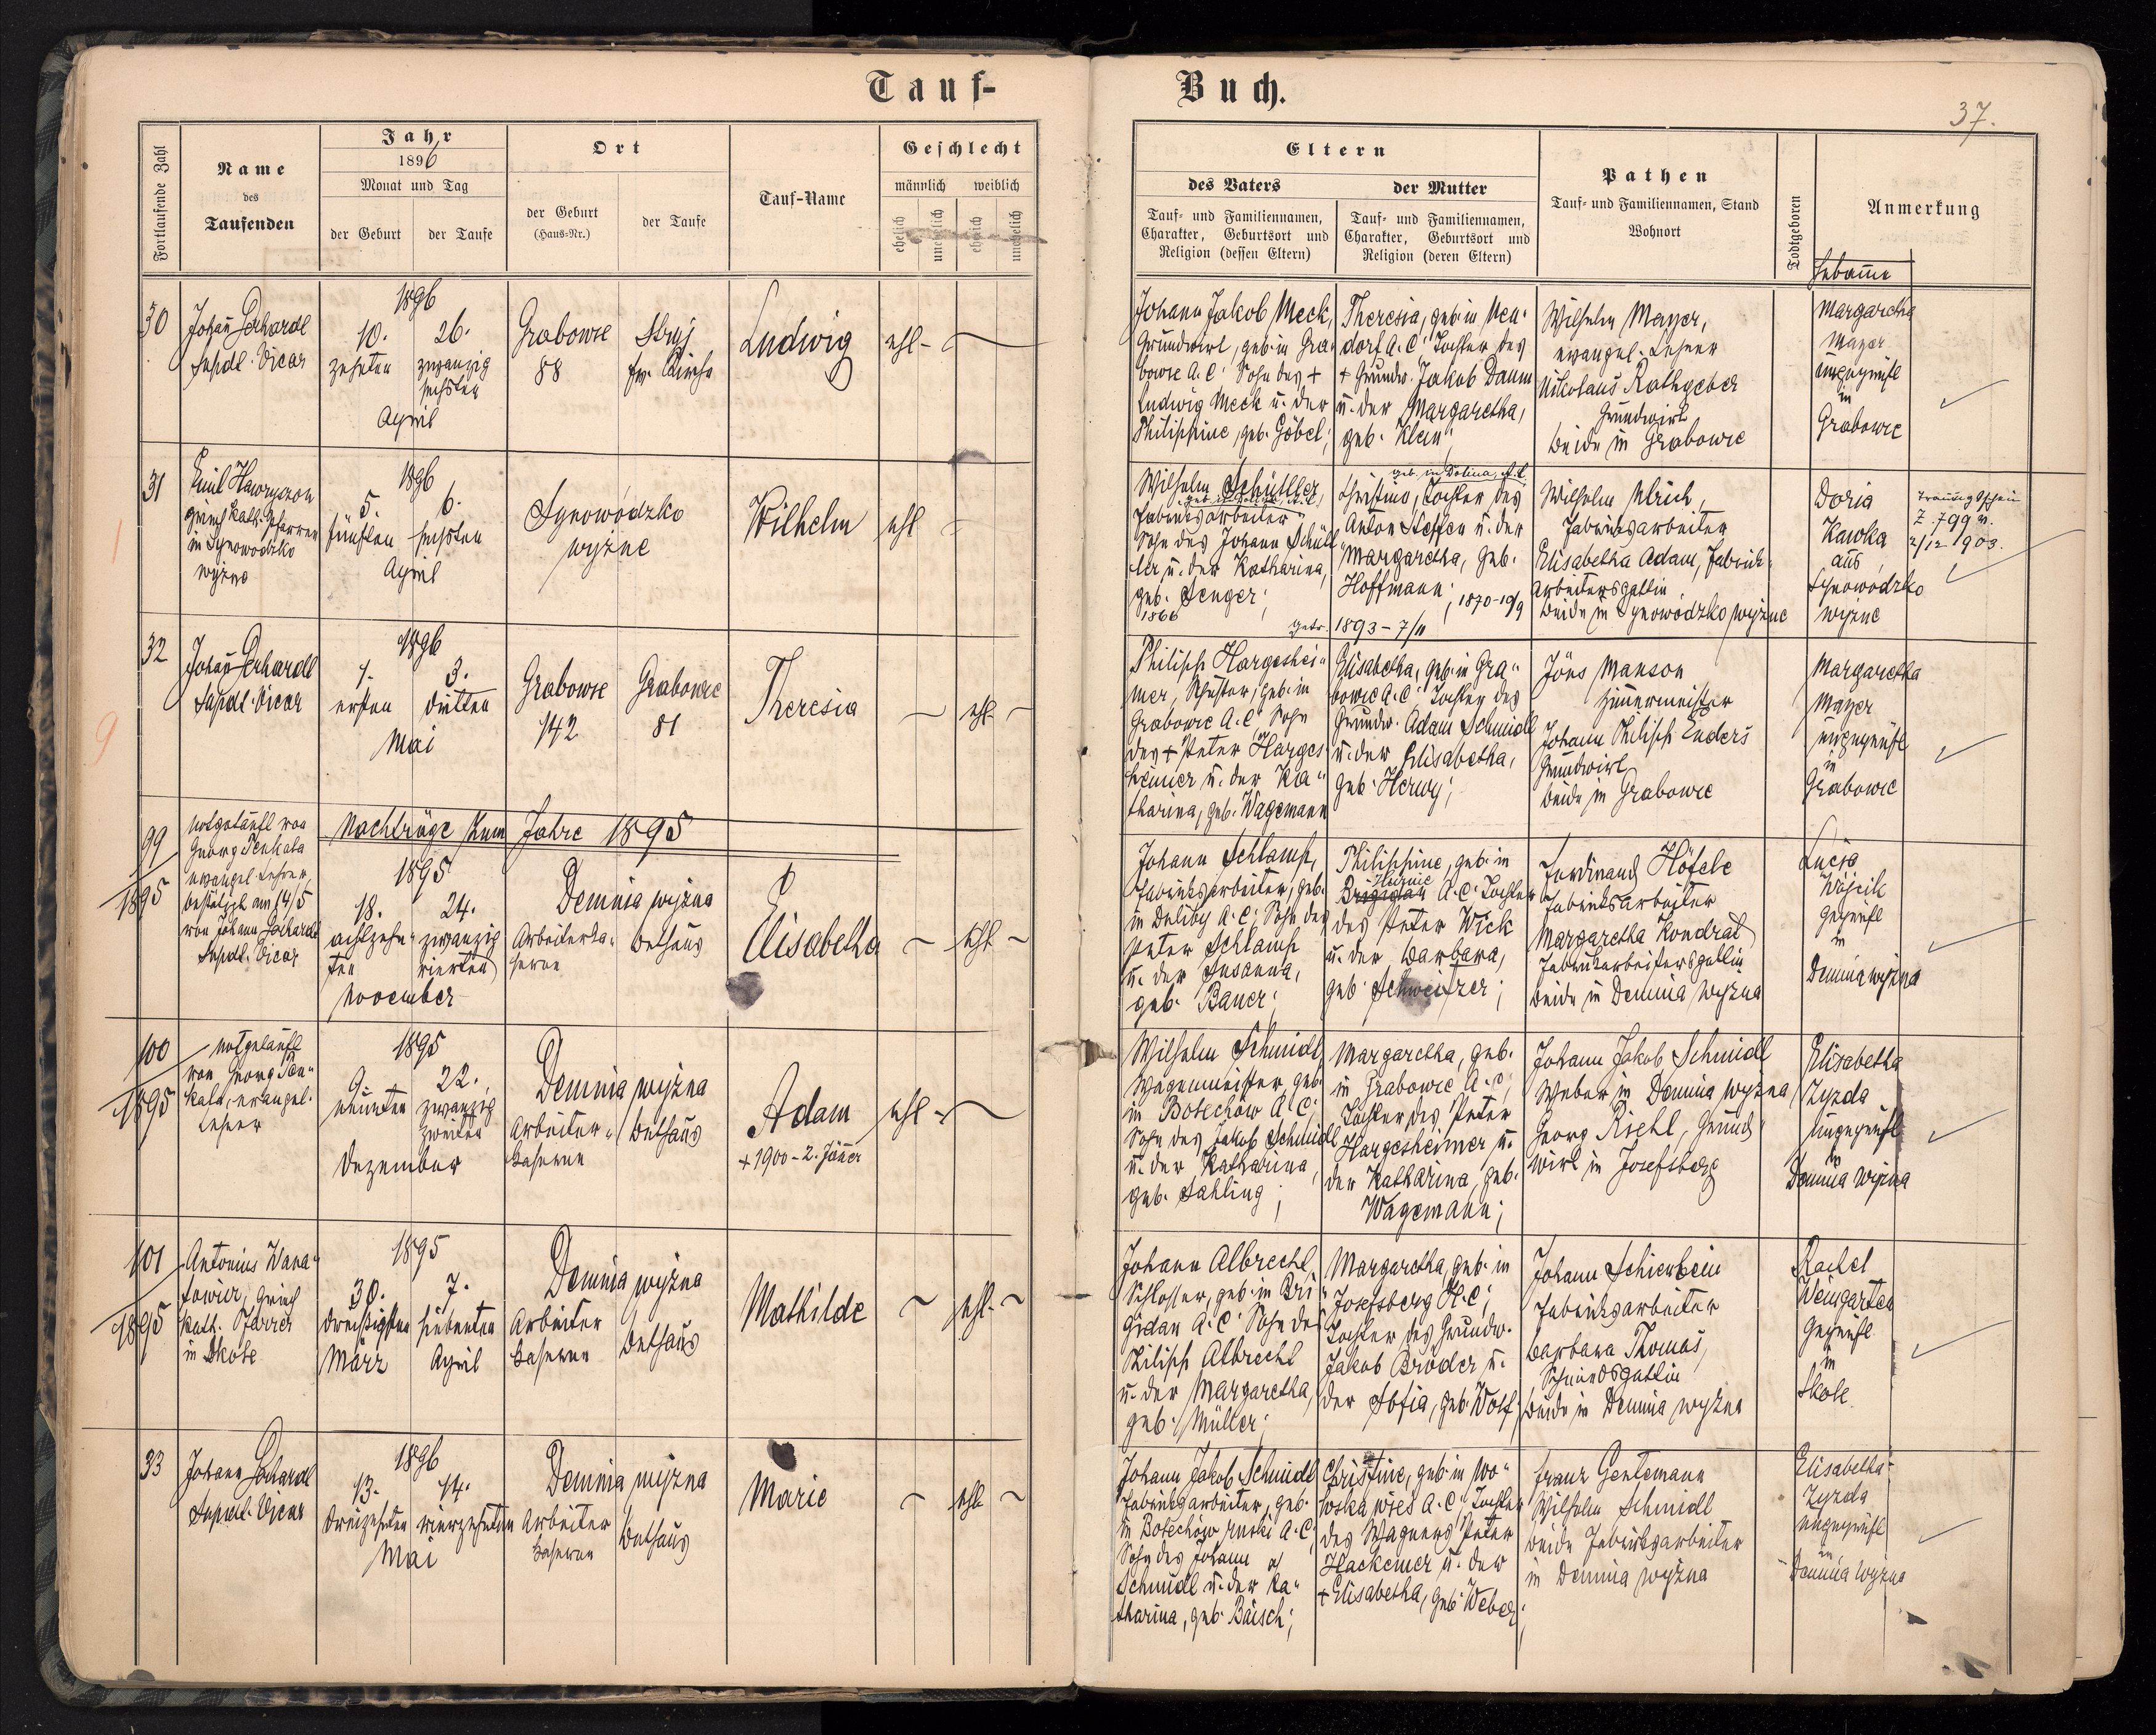 Tauf-
Buch.
37.
Fortlaufende Zahl
Name
des
Taufenden
Jahr
1896
Monat und Tag
der Geburt
der Taufe
Ort
der Geburt
(Haus-Nr.)
der Taufe
Tauf-Name
Geschlecht
männlich
weiblich
ehelich
unehelich
ehelich
unehelich
Eltern
des Vaters
Tauf- und Familiennamen,
Charakter, Geburtsort und
Religion (dessen Eltern)
der Mutter
Tauf- und Familiennamen,
Charakter, Geburtsort und
Religion (deren Eltern)
Pathen
Tauf- und Familiennamen, Stand
Wohnort
Todtgeboren
Anmerkung
Hebamme
30
Johann
Supdl. Vicar
1896
10.
zehnten
26.
zwanzig
sechsten
April
Grabowce
88
Stryj
ev. Kirche
Ludwig
ehl -
Johann Jakob Meck,
Grundwirt, geb. in Gra-
bowce A. C. Sohn des +
Ludwig Meck u. der
Philippine, geb. Göbel;
Theresia, geb. in Neu-
dorf A. C. Tochter des
+ Grundw. Jakob Daum
u. der Margaretha,
geb. Klein;
Wilhelm Mayer,
evangel. Lehrer
Nikolaus Rathgeber
Grundwirt
beide in Grabowce
Margaretha
Mayer
ungeprüft
in
Grabowce
31
Emil Hawryszow
griech. kath. Pfarrer
in Synowodzko
wyżne
1896
5.
fünften
6.
sechsten
April
Synowódzko
wyżne
Wilhelm
ehl
Wilhelm Schüttler,
Fabriksarbeiter
Sohn des Johann Schütt
ler u. der Katharina,
geb. Senger;
1866
geb. in Dolina, A. C.
Christine, Tochter des
Anton Steffen u. der
Margaretha, geb.
Hoffmann; 1870-10/9
getr. 1893 - 7/11
Wilhelm Ulrich,
Fabriksarbeiter
Elisabetha Adam, Fabriks-
arbeitersgattin
beide in Synowódzko wyżne
Doria
Kawka
aus
Synowódzko
wyżne
Trauungsschein
Z. 799 v.
2/12 1903.
32
Johann
Supdl. Vicar
1896
1.
ersten
3.
dritten
Mai
Grabowce
142
Grabowce
81
Theresia
ehl -
Philipp Hargeshei-
mer, Schuster, geb. in
Grabowce A. C. Sohn
des + Peter Harges-
heimer u. der Ka-
tharina, geb. Wagemann
Elisabetha, geb. in Gra-
bowce A. C. Tochter des
Grundw. Adam Schmidt
u. der Elisabetha,
geb. Herwy;
Jöns Manson
Zimmermeister
Johann Philipp Enders
Grundwirt
beide in Grabowce
Margaretha
Mayer
ungeprüft
in
Grabowce
Nachträge zum Jahre 1895
99
1895
notgetauft von
Georg Penkala
evangel. Lehrer,
bestätigt am 14/5
von Johann
Supdl. Vicar
1895
18.
achtzehn-
ten
24.
zwanzig
vierten
November
Demnia wyżna
Arbeiterka-
serne
Bethaus
Elisabetha
ehl -
Johann Schlamp,
Fabriksarbeiter, geb.
in Deliby A. C. Sohn des
Peter Schlamp
u. der Susanna,
geb. Bauer;
Philippine, geb. in
Brigidau A. C. Tochter
des Peter Wick
u. der Barbara,
geb. Schweitzer;
Ferdinand Höfele
Fabriksarbeiter
Margaretha Kondrat
Fabriksarbeitersgattin
beide in Demnia wyżna
Lucia
Wójcik
geprüft
in
Demnia wyżna
100
1895
notgetauft
von Georg Pen-
kala, evangel.
Lehrer
1895
9.
neunten
22.
zwanzig
zweiten
Dezember
Demnia wyżna
Arbeiter-
kaserne
Bethaus
Adam
+ 1900 - 2. Jäner
ehl -
Wilhelm Schmidt,
Wagenmeister, geb.
in Bolechow A. C;
Sohn des Jakob Schmidt
u. der Katharina,
geb. Sahling;
Margaretha, geb.
in Grabowce A. C;
Tochter des Peter
Hargesheimer u.
der Katharina, geb.
Wagemann;
Johann Jakob Schmidt
Weber in Demnia wyżna
Georg Riehl, Grund-
wirt in Josefsberg
Elisabetha
Zyzda
ungeprüft
in
Demnia wyżna
101
1895
Antonius Wana-
towicz, griech.
kath. Pfarrer
in Skole
1895
30.
dreißigsten
März
7.
siebenten
April
Demnia wyżna
Arbeiter
kaserne
Bethaus
Mathilde
ehl. -
Johann Albrecht,
Schlosser, geb. in Bri-
gidau A. C. Sohn des
Philipp Albrecht
u. der Margaretha,
geb. Müller;
Margaretha, geb. in
Josefsberg A. C;
Tochter des Grundw.
Jakob Bröder u.
der Sofia, geb. Wolf;
Johann Schierbein
Fabriksarbeiter
Barbara Thomas,
Schmiedsgattin
beide in Demnia wyżna
Rachel
Weingarten
geprüft
in
Skole.
33
Johann
Supdl. Vicar
1896
13.
dreizehnten
14.
vierzehnten
Mai
Demnia wyżna
Arbeiter
kaserne
Bethaus
Marie
ehl -
Johann Jakob Schmidt
Fabriksarbeiter, geb.
in Bolechów ruski A. C;
Sohn des Johann
Schmidt u. der Ka-
tharina, geb. Bäisch;
Christine, geb. in Wo-
loska wies A. C. Tochter
des Wagners Peter
Hackemer u. der
+ Elisabetha, geb. Weber;
Franz Gentemann
Wilhelm Schmidt
beide Fabriksarbeiter
in Demnia wyżna
Elisabetha
Zyzda
ungeprüft
in
Demnia wyżna
1
9